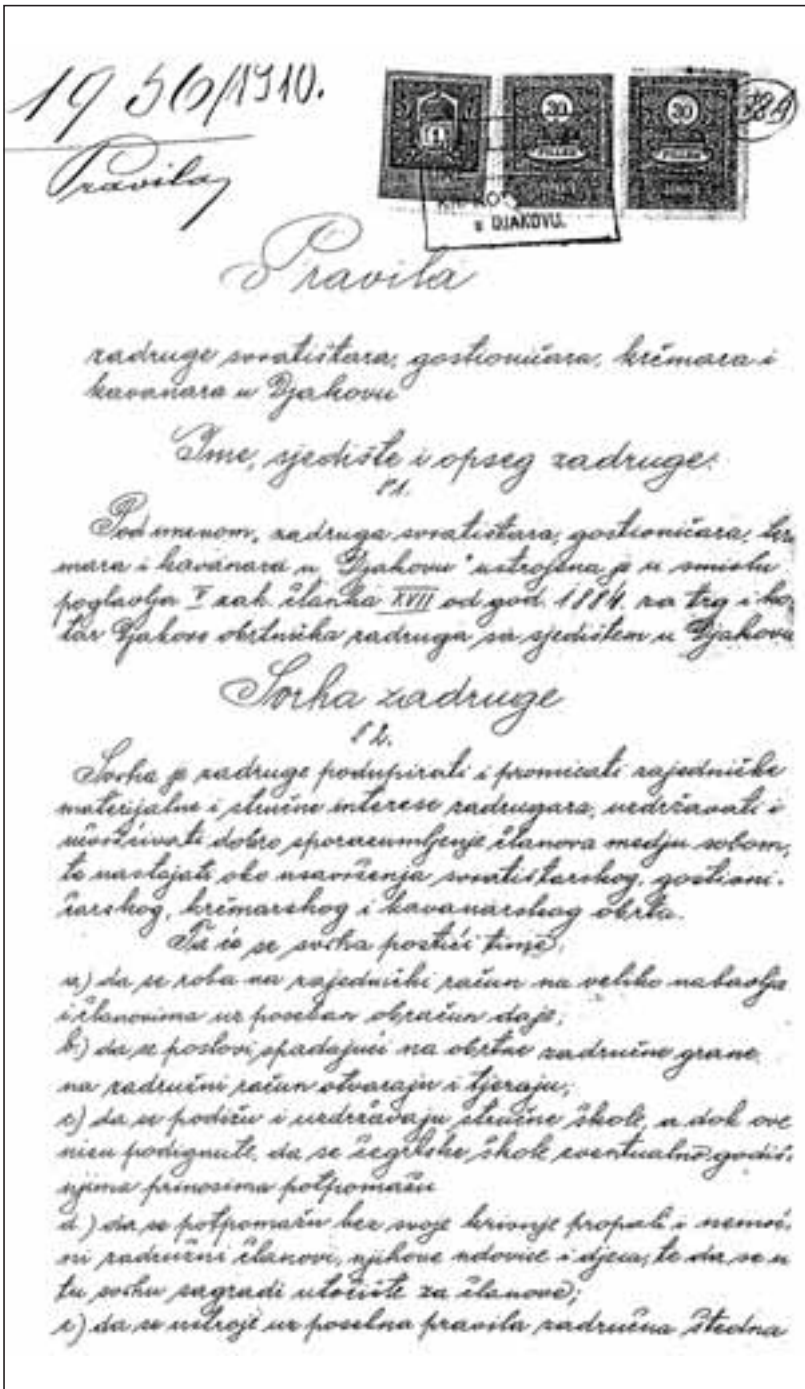 1956/1910.
Pravila
30
30
FILLÉR
FILLÉR
u DJAKOVU.
Pravila
zadruge svratištara, gostioničara, krčmara i
kavanara u Djakovu
Ime, sjedište i opseg zadruge.
§ 1.
Pod imenom „zadruga svratištara, gostioničara, krč
mara i kavanara u Djakovu" ustrojena je u smislu
poglavlja V zak. članka XVII od god. 1884. za trg i ko,
tar Djakovo obrtnička zadruga sa sjedištem u Djakovu
Svrha zadruge
§ 2.
Svrha je zadruge podupirati i promicati zajedničke
materijalne i stručne interese zadrugara, uzdržavati i
učvršćivati dobro sporazumljenje članova medju sobom,
te nastojati oko usavršenja svratištarskog, gostioni-
čarskog, krčmarskog i kavanarskog obrta.
Ta će se svrha postići time,
a) da se roba na zajednički račun na veliko nabavlja
i članovima uz poseban obračun daje;
b.) da se poslovi, spadajući na obrtne zadružne grane,
na zadružni račun otvaraju i tjeraju;
c) da se podižu i uzdržavaju stručne škole, a dok ove
nisu podignute, da se šegrtske škole eventualno godiš,
njima prinosima potpomažu
d.) da se potpomažu bez svoje krivnje propali i nemoć,
ni zadružni članovi, njihove udovice i djeca; te da se u
tu svrhu sagradi utočište za članove;
e) da se ustroje uz posebna pravila zadružna štedna